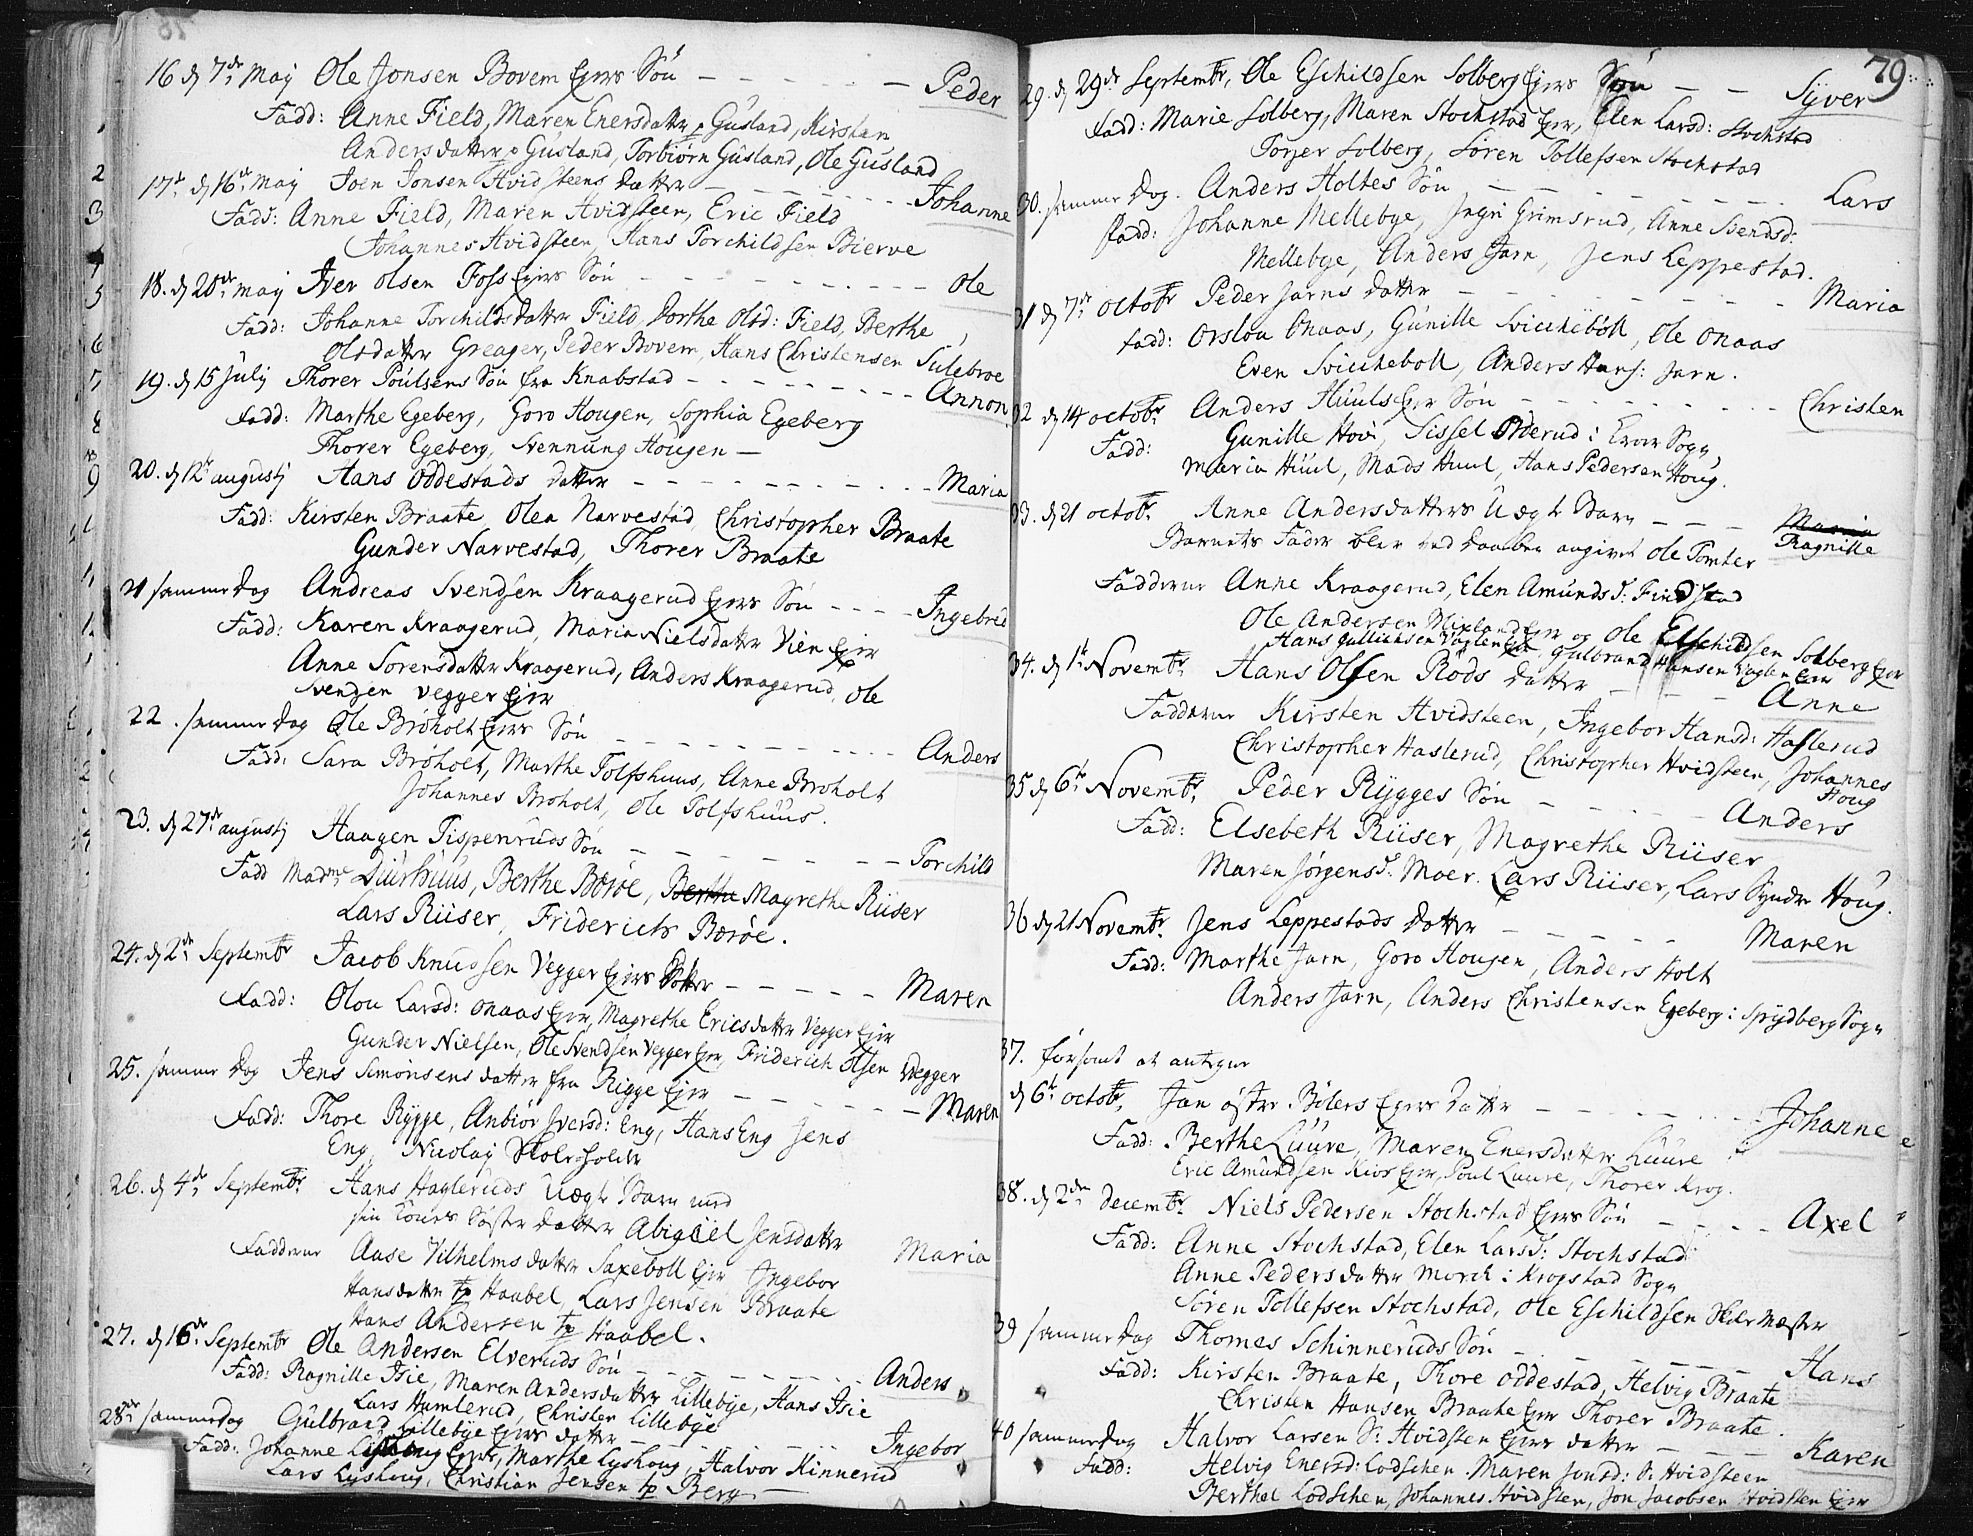 16 d 7de Maj Ole Jonsen Bovem Ejers Søn — Peder
Fadd: Anne Field, Maren Enersdatter p Gusland, Kirsten
Andersdatter p Gusland, Torbiørn Gusland, Ole Gusland
17. d 16de Maj Joen Jonsen Hvidsteens datter — Johanne
Fadd: Anne Field, Maren Hvidsteen, Eric Field
Johannes Hvidsteen, Hans Torchildsen Bierve
18. d 20de Maj Iver Olsen Foss Ejers Søn — Ole
Fadd: Johanne Torchildsdatter Field, Dorthe Olsd: Field, Berthe
Olsdatter Greager, Peder Bovem, Hans Christensen Sulebroe
19. d 15 July Thorer Poulsens Søn fra Knabstad — Annon
Fadd: Marthe Egeberg, Goro Hougen, Sophia Egeberg
Thorer Egeberg, Svennung Hougen —
20. d 12te augustj Hans Oddestads datter — Maria
Fadd: Kirsten Braate, Olea Narvestad, Christopher Braate
Gunder Narvestad, Thorer Braate
21 samme Dag Andreas Svendsen Kraagerud Ejers Søn — Ingebret
Fadd: Karen Kraagerud, Maria Nielsdatter Vien Ejer
Anne Sorensdatter Kraagerud, Anders Kraagerud, Ole
Svendsen Vegger Ejer
22. samme Dag Ole Brøholt Ejers Søn — Anders
Fadd: Sara Brøholt, Marthe Tolfshuus, Anne Broholt
Johannes Broholt, Ole Tolfshuus.
23. d 27de augustj Haagen Tisperuds Søn — Torchild
Fadd Madme Duurhuus, Berthe Børøe, Berthe Magrethe Riiser
Lars Riiser, Friderich Børøe.
24. d 2de Septembr Jacob Knudsen Vegger Ejers Datter — Maren
Fadd: Olou Larsd: Onaas Ejer, Magrethe Ericsdatter Vegger Ejer
Gunder Nielsen, Ole Svendsen Vegger Ejer, Friderich Olsen Vegger
25. samme Dag Jens Simonsens datter fra Rigge Ejer — Maren
Fadd: Thore Rygge, Anbiør Iversd: Eng, Hans Eng Jens
Eng, Nicolaj Skoleholder
26. d 4de Septembr Hans Hagleruds Uægte Barn med
sin Kones Søster datter Abigael Jensdatter — Maria
Fadderne Aase Vilhelmsdatter Saxeboll Ejer Ingebor
Hansdatter tp Haabel, Lars Jensen Braate
Hans Andersen tp Haabel.
27. d 16de Septembr Ole Andersen Elveruds Søn — Anders
Fadd: Ragnille Isie, Maren Andersdatter Lillebye, Hans Isie
Lars Humlerud, Christen Lillebye
28de samme dag Gulbrand Lillebye Ejers datter — Ingebor
Fadd: Johanne Lyshoug Ejers, Marthe Lyshoug, Halvor Kinnerud
Lars Lyshoug, Christian Jensen tp Berg —
79
29. d 29de Septembr, Ole Eschildsen Solberg Ejers Søn — Syver
Fadd: Marie Solberg, Maren Stochstad Ejer, Elen Larsd: Stochstad
Torjer Solberg, Søren Tollefsen Stochstad
30. samme Dag. Anders Holtes Søn — Lars
Fadd: Johanne Mellebye, Ingri Grimsrud, Anne Svendsd:
Mellebye, Anders Jarn, Jens Leppestad.
31 d 7de Octobr Peder Jarns datter — Maria
Fadd: Orsloa Onaas, Gunille Sviccheboll, Ole Onaas
Even Sviccheboll, Anders Hans: Jarn.
32 d 14 octobr Anders Huuls Ejer Søn — Christen
Fadd: Gunille Hovi, Sissel Oderud i Kroer Sogn,
Maria Huul, Mads Huul, Hans Pedersen Houg.
33. d 21 octobr. Anne Andersdatters Uægte Barn — Maria
Ragnille
Barnets Fader blev ved Daaben angivet Ole Tomter
Fadderne Anne Kraagerud, Elen Amundsd: Findstad
Ole Andersen Mixland Ejer og Ole Eschildsen Solberg Ejer
Hans Gullichsen Vaglen Ejer, Gulbrand Hansen Vaglen Ejer
34. d 1te Novembr, Hans Olsen Røds datter — Anne
Fadderne Kirsten Hvidsteen, Ingebor Hansd: Haslerud
Christopher Haslerud, Christopher Hvidsteen, Johannes
Houg
35 d 6te Novembr. Peder Rygges Søn — Anders
Fadd: Elsebeth Riiser, Magrethe Riiser
Maren Jørgensd: Moer. Lars Riiser, Lars Syndre Houg.
36 d 21 Novembr. Jens Leppestads Datter — Maren
Fadd: Marthe Jarn, Goro Hougen, Anders Holt
Anders Jarn, Anders Christensen Egeberg i Spydberg Sogn
37. forsømt at antegne
d 6te octobr, Jan østre Bølers Ejers Datter — Johanne
Fadd: Berthe Luure, Maren Enersdatter Luure
Eric Amundsen Kios Ejer, Poul Luure, Thorer Krog.
38. d 2den Decembr. Niels Pedersen Stochstad Ejers Søn — Axel
Fadd: Anne Stochstad, Elen Larsd: Stochstad
Anne Pedersdatter Morch i Krogstad Sogn
Søren Tollefsen Stochstad, Ole Eschildsen Skolemester
39 samme Dag Thomes Schinneruds Søn — Hans
Fadd: Kirsten Braate, Thore Oddestad, Helvig Braate
Christen Hansen Braate Ejer Thorer Braate.
40 samme Dag Halvor Larsen S: Hvidsten Ejers datter — Karen
Fadd: Helvig Enersd: Lodschen. Maren Jonsd: S: Hvidsteen
Berthel Lodschen, Johannes Hvidsten, Jon Jacobsen Hvidsten Ejer